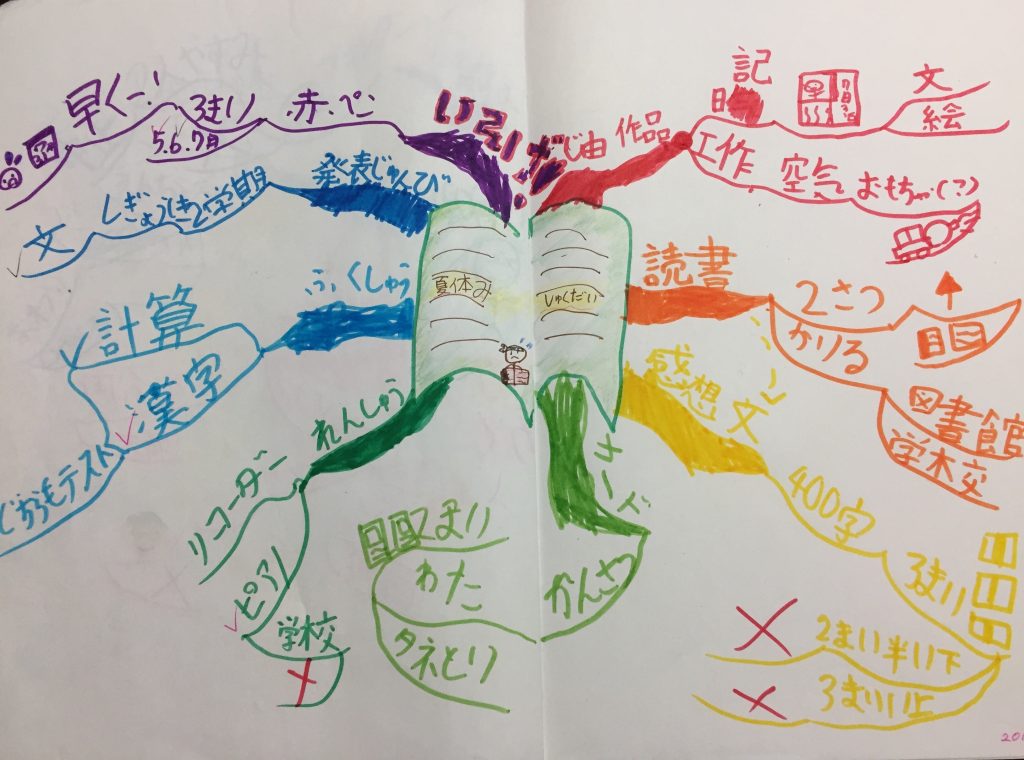 夏休み
しゅくだい
じ由作品
日記
文
絵
工作
空気
おもちゃ(?)
読書
2さつ
かりる
図書館
学校
感想文
400字
3まい
2まい半以下
3まい以上
カード
かんさつ
2まい
わた
タネとり
れんしゅう
リコーダー
ピアノ
学校
ふくしゅう
計算
漢字
どちらもテスト
発表じゅんび
しぎょうしき2学期
文
赤ペン
3まい
5.6.7月
早くー!